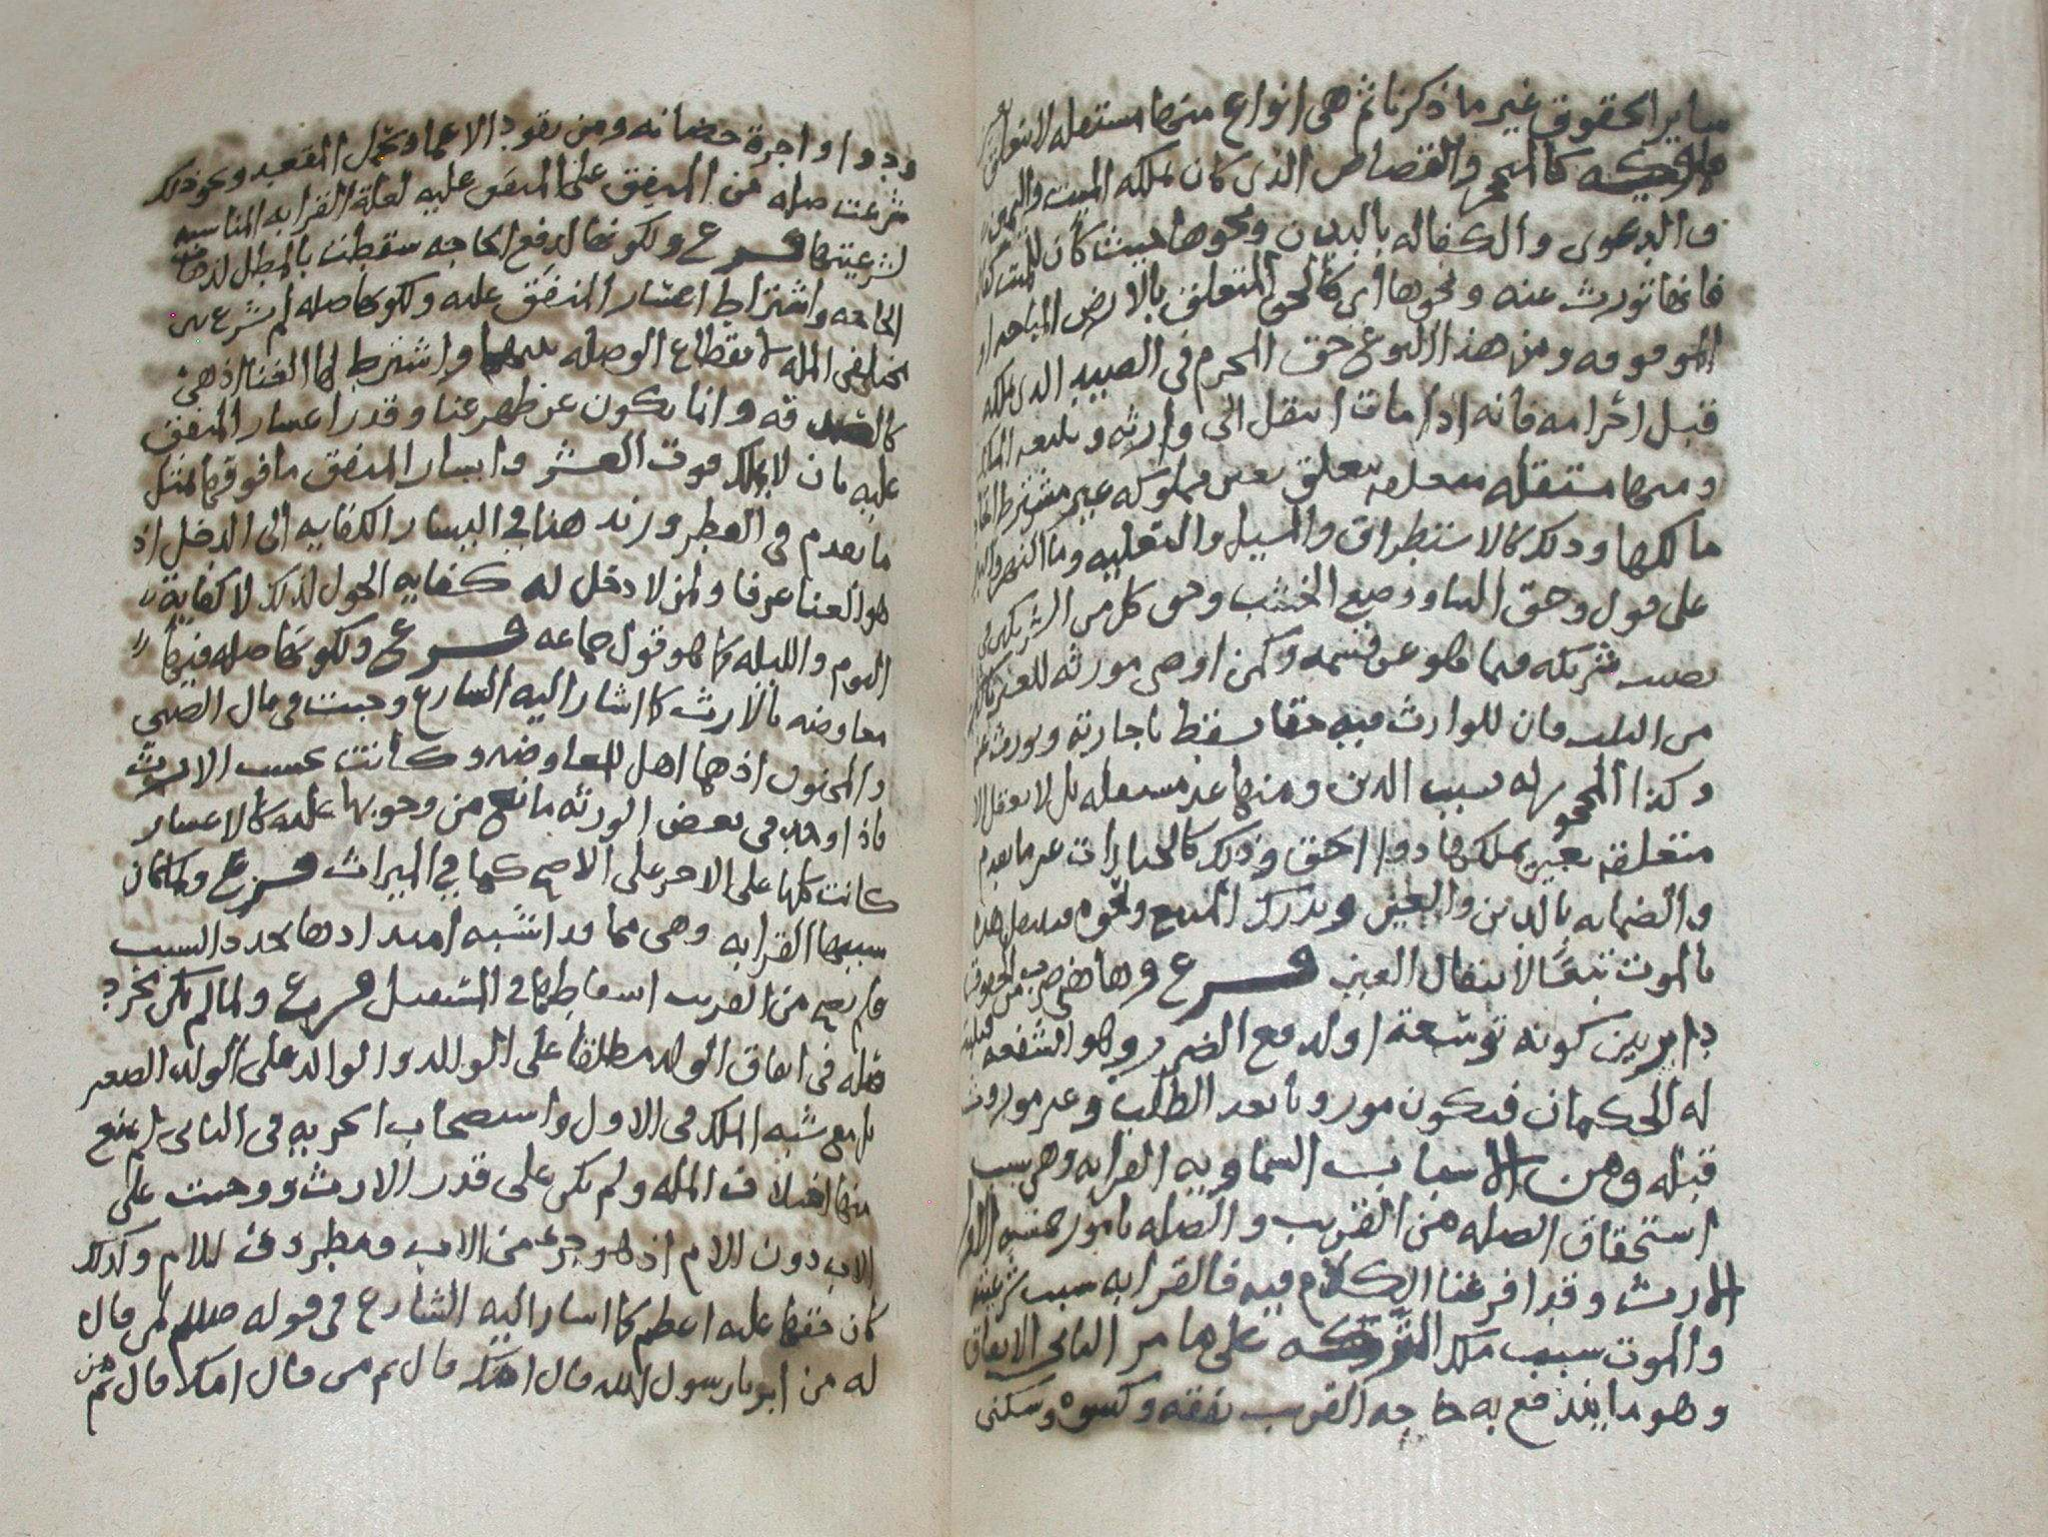 ساير الحقوق غير ما ذكرنا ثم هى انواع منها مستقله لا تتعلق
كالحجر والقصاص الذى كان يملكه الميت واليمين
والدعوى والكفاله بالبدن ونحوها حيث كان للميت
فانها تورث عنه ونحوها اى كالحق المتعلق بالارض المباحه او
الموقوفه ومن هذا النوع حق المحرم فى الصيد الذى ملكه
قبل احرامه فانه اذا مات انتقل الى وارثه
ومنها مستقله متعلقه بعين مملوكه غير مشترط
مالكها وذلك كالاستطراق والمسيل والتعليه وما النهر
على قول وحق البنا ووضع الخشب وحق كل من الشريكين فى
نصيب شريكه فيما هو عن قسمه وكمن اوصى مورثه للغير
من الثلث فان للوارث فيه حقا يسقط باجازته ويورث عنه
وكذا المحجور له بسبب الدين ومنها غير مستقله بل لا تعقل الا
متعلقه بعين يملكها ذو الحق وذلك كالخيارات غير ما تقدم
والضمانه بالدين والعين ودرك المبيع ونحوه هذه
بالموت تبعا لانتقال العين فرع وهاهنا ضرب من الحقوق
داير بين كونه توسعة او لدفع الضرر وهو الشفعه
له الحكمان فيكون موروثا بعد الطلب وغير موروث
قبله ومن الاسباب السماويه القرابه وهى سبب
استحقاق الصله من القريب والصله بامور خمسه الاول
الارث وقد افرغنا الكلام فيه فالقرابه سبب شرعيته
والموت سبب ملك التركه على ما مر الثانى الانفاق
وهو ما يندفع به حاجه القريب نفقه وكسوه وسكنى
ودوا واجرة حضانه ومن يقود الاعما ويحمل المقعد ونحو ذلك
شرعت صله من المنفق على المنفق عليه لعلة القرابه المناسبه
لشرعيتها فرع ولكونها لدفع الحاجه سقطت بالمطل لذهاب
الحاجه واشتراط اعسار المنفق عليه ولكونها صله لم تشرع بين
مختلفى المله لانقطاع الوصله بينهما واشترط لها الغنا اذ هى
كالصدقه وانما يكون عن ظهر غنا وقدر اعسار المنفق
عليه بان لا يملك قوت العشر وايسار المنفق ما فوقها لمثل
ما تقدم فى الفطر وزيد هنا فى اليسار الكفايه الى الدخل اذ
هو الغنا عرفا ولمن لا دخل له كفايه الحول لذلك لا كفاية
اليوم والليله كما هو قول جماعه فرع ولكونها صله فيها
معاوضه بالارث كما اشار اليه الشارع وجبت فى مال الصبى
والمجنون اذ هما اهل للمعاوضه وكانت بحسب الارث
فاذا وجد فى بعض الورثه مانع من وجوبها عليه كالاعسار
كانت كلها على الاخر على الاصح كما فى الميراث فرع ولما كان
سببها القرابه وهى مما قد اشبه امتدادها تجدد السبب
فلم يصح من القريب اسقاطها فى المستقبل فرع ولما لم يكن تجرد
صله فى انفاق الولد مطلقا على الوالد والوالد على الولد الصغير
بل مع شبه الملك فى الاول واستصحاب الحريه فى الثانى لم يمنع
منها اختلاف المله ولم يكن على قدر الارث ووجبت على
الاب دون الام اذ هو جزء من الاب ومظروف للام وكذلك
كان حقها عليه اعظم كما اشار اليه الشارع فى قوله صللم لمن قال
له من ابر يا رسول الله قال امك قال ثم من قال امك قال ثم من